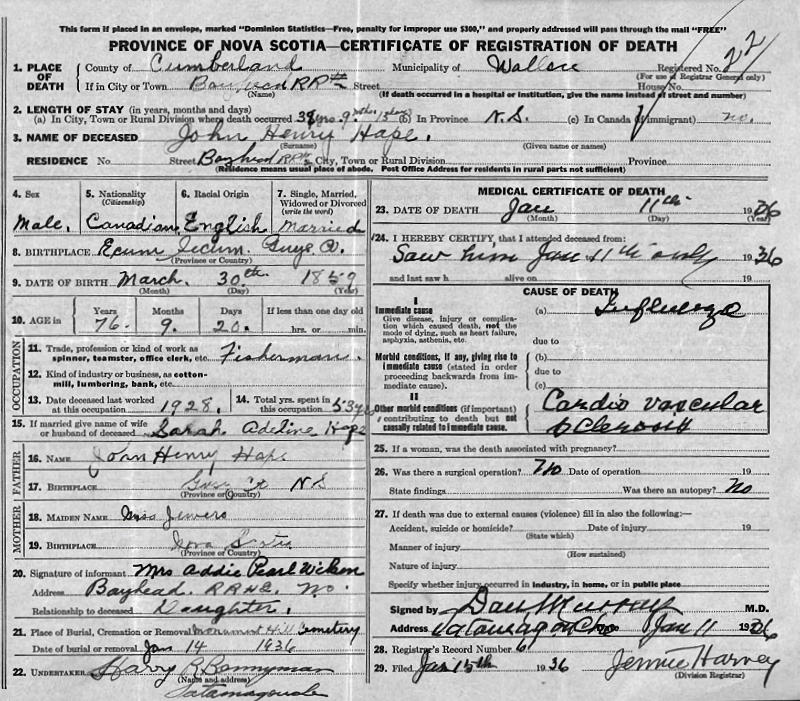 This form if placed in an envelope, marked "Dominion Statistics—Free, penalty for improper use $300," and properly addressed will pass through the mail "FREE"
PROVINCE OF NOVA SCOTIA—CERTIFICATE OF REGISTRATION OF DEATH
1. PLACE OF DEATH
County of Cumberland Municipality of Wallace Registered No. 22
(For use of Registrar General only)
If in City or Town Street House No.
(Name) (If death occurred in a hospital or institution, give the name instead of street and number)
2. LENGTH OF STAY (in years, months and days)
(a) In City, Town or Rural Division where death occurred 38 yrs. 9 mths (b) In Province N.S. (c) In Canada (if immigrant) no.
3. NAME OF DECEASED John Henry Hape.
(Surname) (Given name or names)
RESIDENCE No Street Bayhead City, Town or Rural Division Province
(Residence means usual place of abode. Post Office Address for residents in rural parts not sufficient)
4. Sex Male.
5. Nationality (Citizenship) Canadian
6. Racial Origin English
7. Single, Married, Widowed or Divorced (write the word) Married
8. BIRTHPLACE Ecum Secum. Guys.
(Province or Country)
9. DATE OF BIRTH March. 30th 1859
(Month) (Day) (Year)
10. AGE in Years 76. Months 9. Days 20. If less than one day old hrs. or min.
OCCUPATION
11. Trade, profession or kind of work as spinner, teamster, office clerk, etc. Fisherman.
12. Kind of industry or business, as cotton-mill, lumbering, bank, etc.
13. Date deceased last worked at this occupation 1928.
14. Total yrs. spent in this occupation 53 yrs
15. If married give name of wife or husband of deceased Sarah Adeline Hape
FATHER
16. NAME John Henry Hape
17. BIRTHPLACE Guys Co N S
(Province or Country)
MOTHER
18. MAIDEN NAME Miss Jewers
19. BIRTHPLACE Nova Scotia
(Province or Country)
20. Signature of informant Mrs Addie Pearl Wilson
Address Bayhead.
Relationship to deceased Daughter.
21. Place of Burial, Cremation or Removal Hill Cemetery
Date of burial or removal Jan 14 1936
22. UNDERTAKER Harry R Bonnyman
(Name and address)
Tatamagouche
MEDICAL CERTIFICATE OF DEATH
23. DATE OF DEATH Jan 11th 1936
(Month) (Day) (Year)
24. I HEREBY CERTIFY, that I attended deceased from:
Saw him Jan 11th only 1936
and last saw h alive on 19
CAUSE OF DEATH
I
Immediate cause (a) Influenza
Give disease, injury or complication which caused death, not the mode of dying, such as heart failure, asphyxia, asthenia, etc.
due to
Morbid conditions, if any, giving rise to immediate cause (stated in order proceeding backwards from immediate cause).
(b)
due to
(c)
II
Other morbid conditions (if important) contributing to death but not causally related to immediate cause.
Cardio vascular
Sclerosis
25. If a woman, was the death associated with pregnancy?
26. Was there a surgical operation? No Date of operation 19
State findings Was there an autopsy? No
27. If death was due to external causes (violence) fill in also the following:—
Accident, suicide or homicide? Date of injury 19
(State which)
Manner of injury
(How sustained)
Nature of injury
Specify whether injury occurred in industry, in home, or in public place
Signed by Dan Murray M.D.
Address Tatamagouche Date Jan 11 1936
28. Registrar's Record Number 6
29. Filed Jan 15th 1936 Jennie Harvey
(Division Registrar)